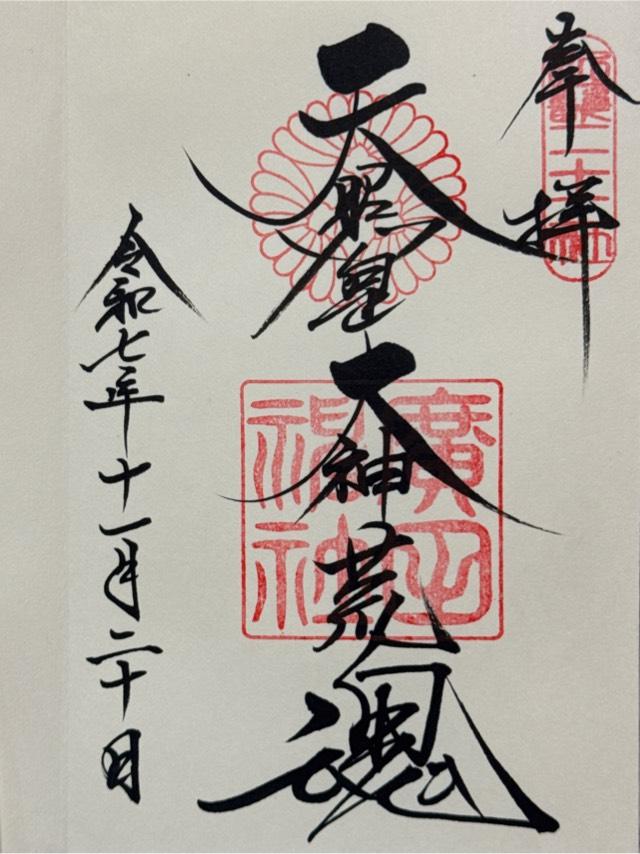 奉拝
天照皇大神荒魂
廣田神社
令和七年十一月二十日